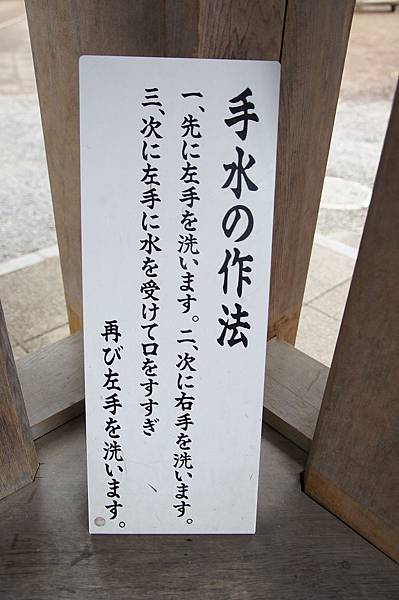 手水の作法
一、先に左手を洗います。二、次に右手を洗います。
三、次に左手に水を受けて口をすすぎ
再び左手を洗います。